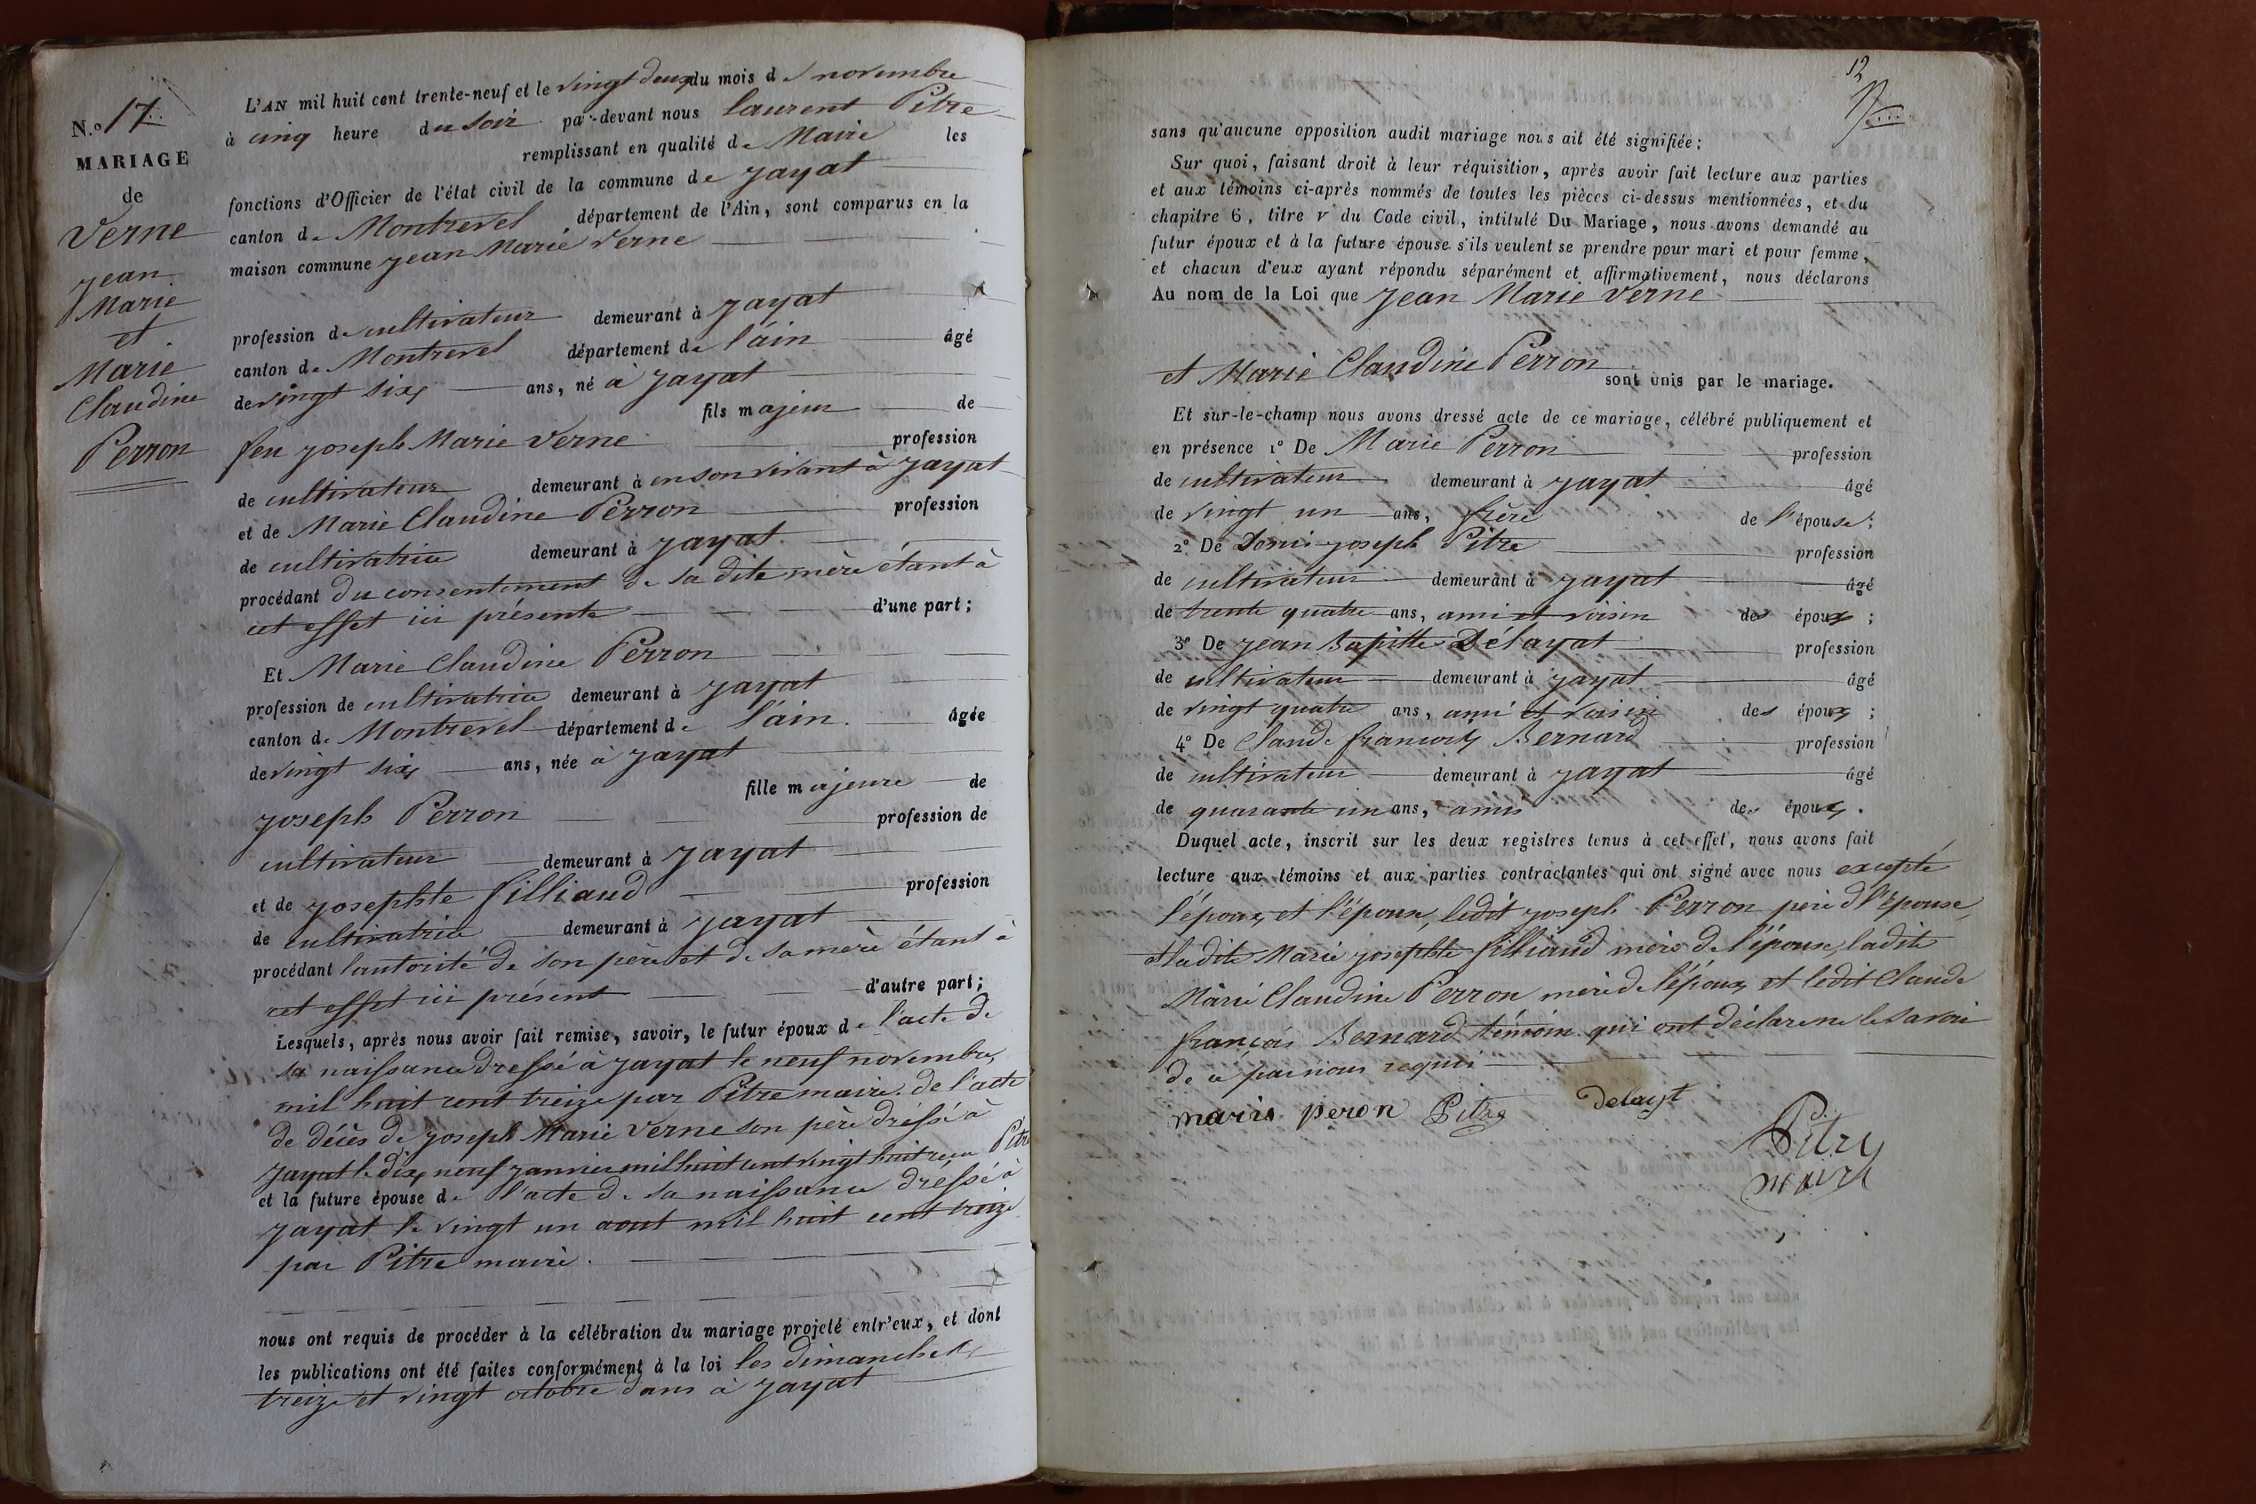 N.o 17
MARIAGE
de
Verne
Jean
Marie
et
Marie
Claudine
Perron
L'AN mil huit cent trente-neuf et le vingt deux du mois de novembre
à cinq heure du soir par-devant nous laurent Pitre
remplissant en qualité de Maire les
fonctions d'Officier de l'état civil de la commune de Jayat
canton de Montrevel département de l'Ain, sont comparus en la
maison commune Jean Marie Verne
profession de cultivateur demeurant à Jayat
canton de Montrevel département de l'ain âgé
de vingt six ans, né à Jayat
fils majeur de
feu Joseph Marie Verne profession
de cultivateur demeurant à en son vivant à Jayat
et de Marie Claudine Perron profession
de cultivatrice demeurant à Jayat
procédant du consentement de sa dite mère étant à
cet effet ici présente d'une part;
Et Marie Claudine Perron
profession de cultivatrice demeurant à Jayat
canton de Montrevel département de l'ain âgée
de vingt six ans, née à Jayat
fille majeure de
Joseph Perron profession de
cultivateur demeurant à Jayat
et de Josephte filliaud profession
de cultivatrice demeurant à Jayat
procédant l'autorité de son père et de sa mère étant à
cet effet ici présent d'autre part;
Lesquels, après nous avoir fait remise, savoir, le futur époux de l'acte de
sa naissance dressé à Jayat le neuf novembre
mil huit cent treize par Pitre maire. de l'acte
de décès de Joseph Marie Verne son père dréssé à
Jayat le dix neuf janvier mil huit cent vingt huit reçu Pitre
et la future épouse de l'acte de sa naissance dréssé à
Jayat le vingt un aout mil huit cent treize
par Pitre maire.
nous ont requis de procéder à la célébration du mariage projeté entr'eux, et dont
les publications ont été faites conformément à la loi les dimanches
treize et vingt octobre dans à Jayat
12
sans qu'aucune opposition audit mariage nous ait été signifiée;
Sur quoi, faisant droit à leur réquisition, après avoir fait lecture aux parties
et aux témoins ci-après nommés de toutes les pièces ci-dessus mentionnées, et du
chapitre 6, titre v du Code civil, intitulé Du Mariage, nous avons demandé au
futur époux et à la future épouse s'ils veulent se prendre pour mari et pour femme,
et chacun d'eux ayant répondu séparément et affirmativement, nous déclarons
Au nom de la Loi que Jean Marie Verne
et Marie Claudine Perron
sont unis par le mariage.
Et sur-le-champ nous avons dressé acte de ce mariage, célébré publiquement et
en présence 1° De Marie Perron profession
de cultivateur demeurant à Jayat âgé
de vingt un ans, frère de l'épouse;
2° De Denis Joseph Pitre profession
de cultivateur demeurant à Jayat âgé
de trente quatre ans, ami et voisin des époux;
3° De Jean Baptitte Délayat profession
de cultivateur demeurant à Jayat âgé
de vingt quatre ans, ami et voisin des époux;
4° De Claude francois Bernard profession
de cultivateur demeurant à Jayat âgé
de quarante un ans, amis des époux.
Duquel acte, inscrit sur les deux registres tenus à cet effet, nous avons fait
lecture aux témoins et aux parties contractantes qui ont signé avec nous excepté
l'époux et l'épouse, ledit joseph Perron père d l'épouse,
et ladite Marie josephte filliaud mère de l'épouse, ladite
Marie Claudine Perron mère de l'époux et ledit Claude
françois Bernard témoin qui ont déclaré ne le savoir
de ce par nous requis
marie peron Pitre delayat
Pitre
maire